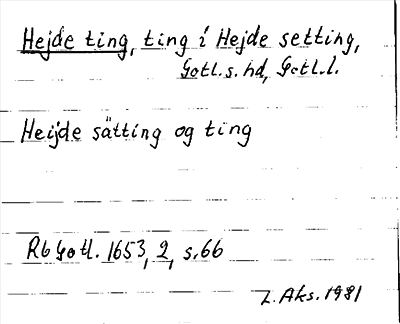 Hejde ting, ting i Hejde setting,
Gotl.s. hd, Gotl.l.
Heijde sätting og ting
Rb Gotl. 1653, 2, s.66
L. Aks. 1981